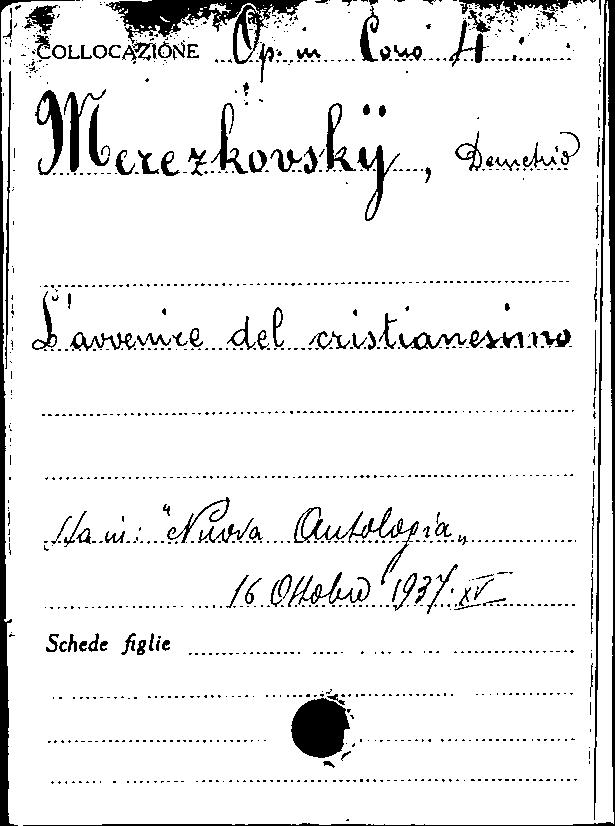 COLLOCAZIONE Op. in Coro 4
Merezkovskÿ, Demetrio
L'avvenire del cristianesimo
Sta in: "Nuova Antologia„
16 Ottobre 1937. XV
Schede figlie